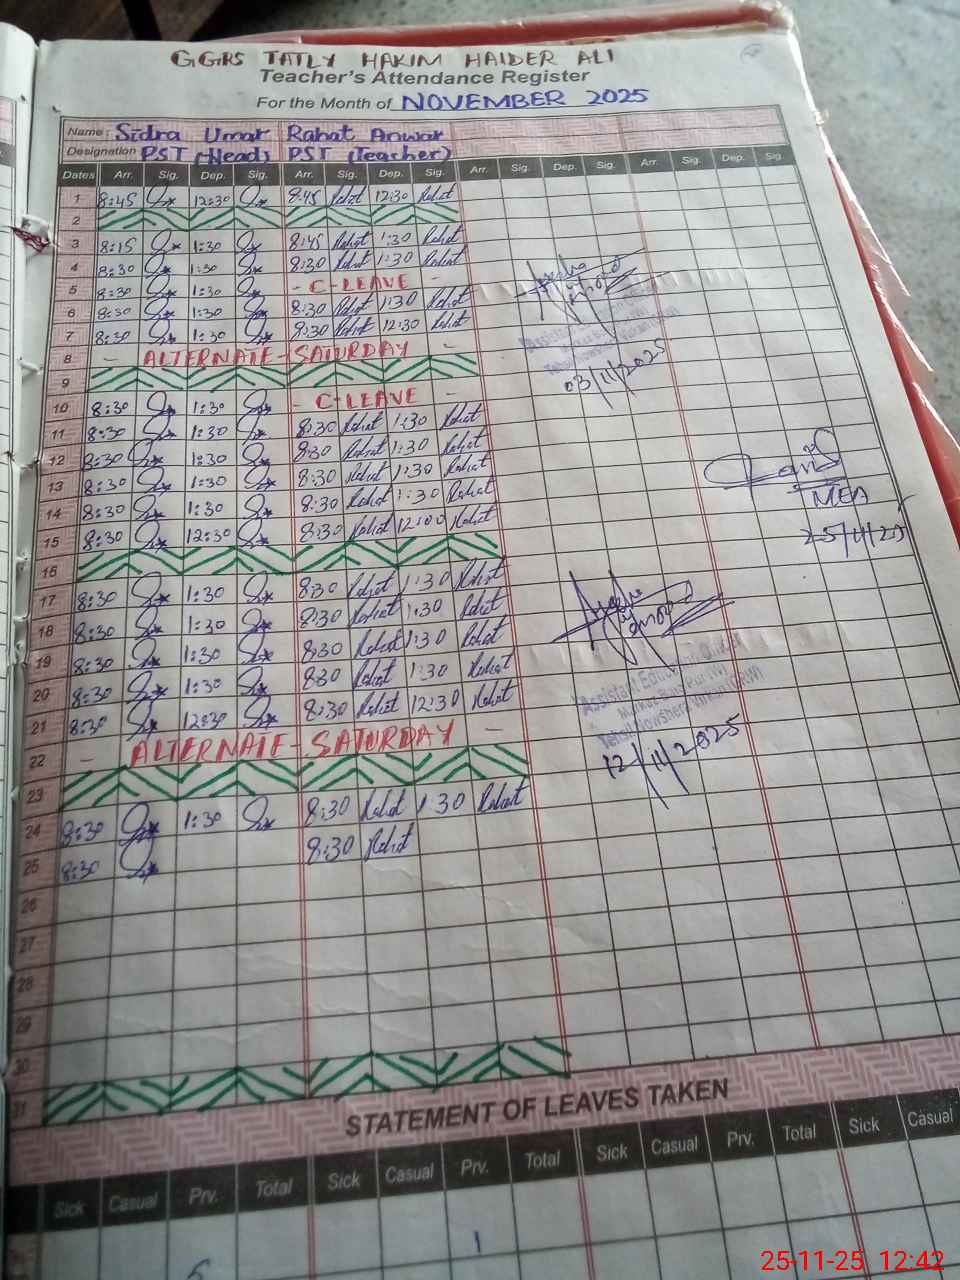 GGPS TATLY HAKIM HAIDER ALI
Teacher's Attendance Register
For the Month of NOVEMBER 2025
Name: Sidra Umar Rahat Anwar
Designation PST (Head) PST (Teacher)
Dates Arr. Sig. Dep. Sig. Arr. Sig. Dep. Sig. Arr. Sig. Dep. Sig. Arr. Sig. Dep. Sig.
1 8:45 12:30 8:45 Rahat 12:30 Rahat
2
3 8:15 1:30 8:45 Rahat 1:30 Rahat
4 8:30 1:30 8:30 Rahat 1:30 Rahat
5 8:30 1:30 - C-LEAVE -
6 8:30 1:30 8:30 Rahat 1:30 Rahat
7 8:30 1:30 8:30 Rahat 12:30 Rahat
8 - ALTERNATE-SATURDAY -
9
10 8:30 1:30 - C-LEAVE -
11 8:30 1:30 8:30 Rahat 1:30 Rahat
12 8:30 1:30 8:30 Rahat 1:30 Rahat
13 8:30 1:30 8:30 Rahat 1:30 Rahat
14 8:30 1:30 8:30 Rahat 1:30 Rahat
15 8:30 12:30 8:30 Rahat 12:00 Rahat
16
17 8:30 1:30 8:30 Rahat 1:30 Rahat
18 8:30 1:30 8:30 Rahat 1:30 Rahat
19 8:30 1:30 8:30 Rahat 1:30 Rahat
20 8:30 1:30 8:30 Rahat 1:30 Rahat
21 8:30 12:30 8:30 Rahat 12:30 Rahat
22 - ALTERNATE-SATURDAY -
23
24 8:30 1:30 8:30 Rahat 1:30 Rahat
25 8:30 8:30 Rahat
26
27
28
29
30
31
Assistant Education Officer
03/11/2025
MEA
25/11/25
Assistant Education Officer
12/11/2025
STATEMENT OF LEAVES TAKEN
Sick Casual Prv. Total Sick Casual Prv. Total Sick Casual Prv. Total Sick Casual
5 1
25-11-25 12:42